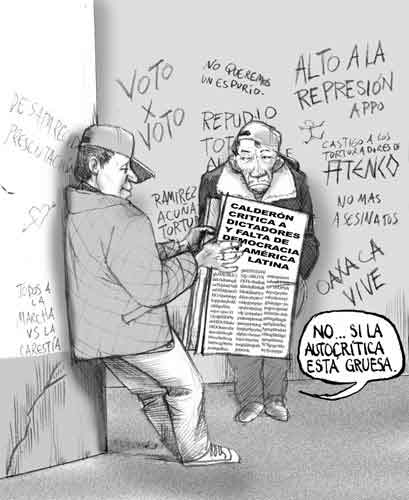 VOTO
X
VOTO
NO QUEREMOS
UN ESPURIO.
ALTO A LA
REPRESIÓN
APPO
REPUDIO
TOT
CASTIGO A LOS
TORTURADORES DE
ATENCO
RAMIREZ
ACUÑA
TORTU
NO MAS
ASESINATOS
OAXACA
VIVE
TODOS A
LA
MARCHA
VS LA
CARESTÍA
CALDERÓN
CRITICA A
DICTADORES
Y FALTA DE
DEMOCRACIA
AMÉRICA
LATINA
NO... SI LA
AUTOCRÍTICA
ESTÁ GRUESA.